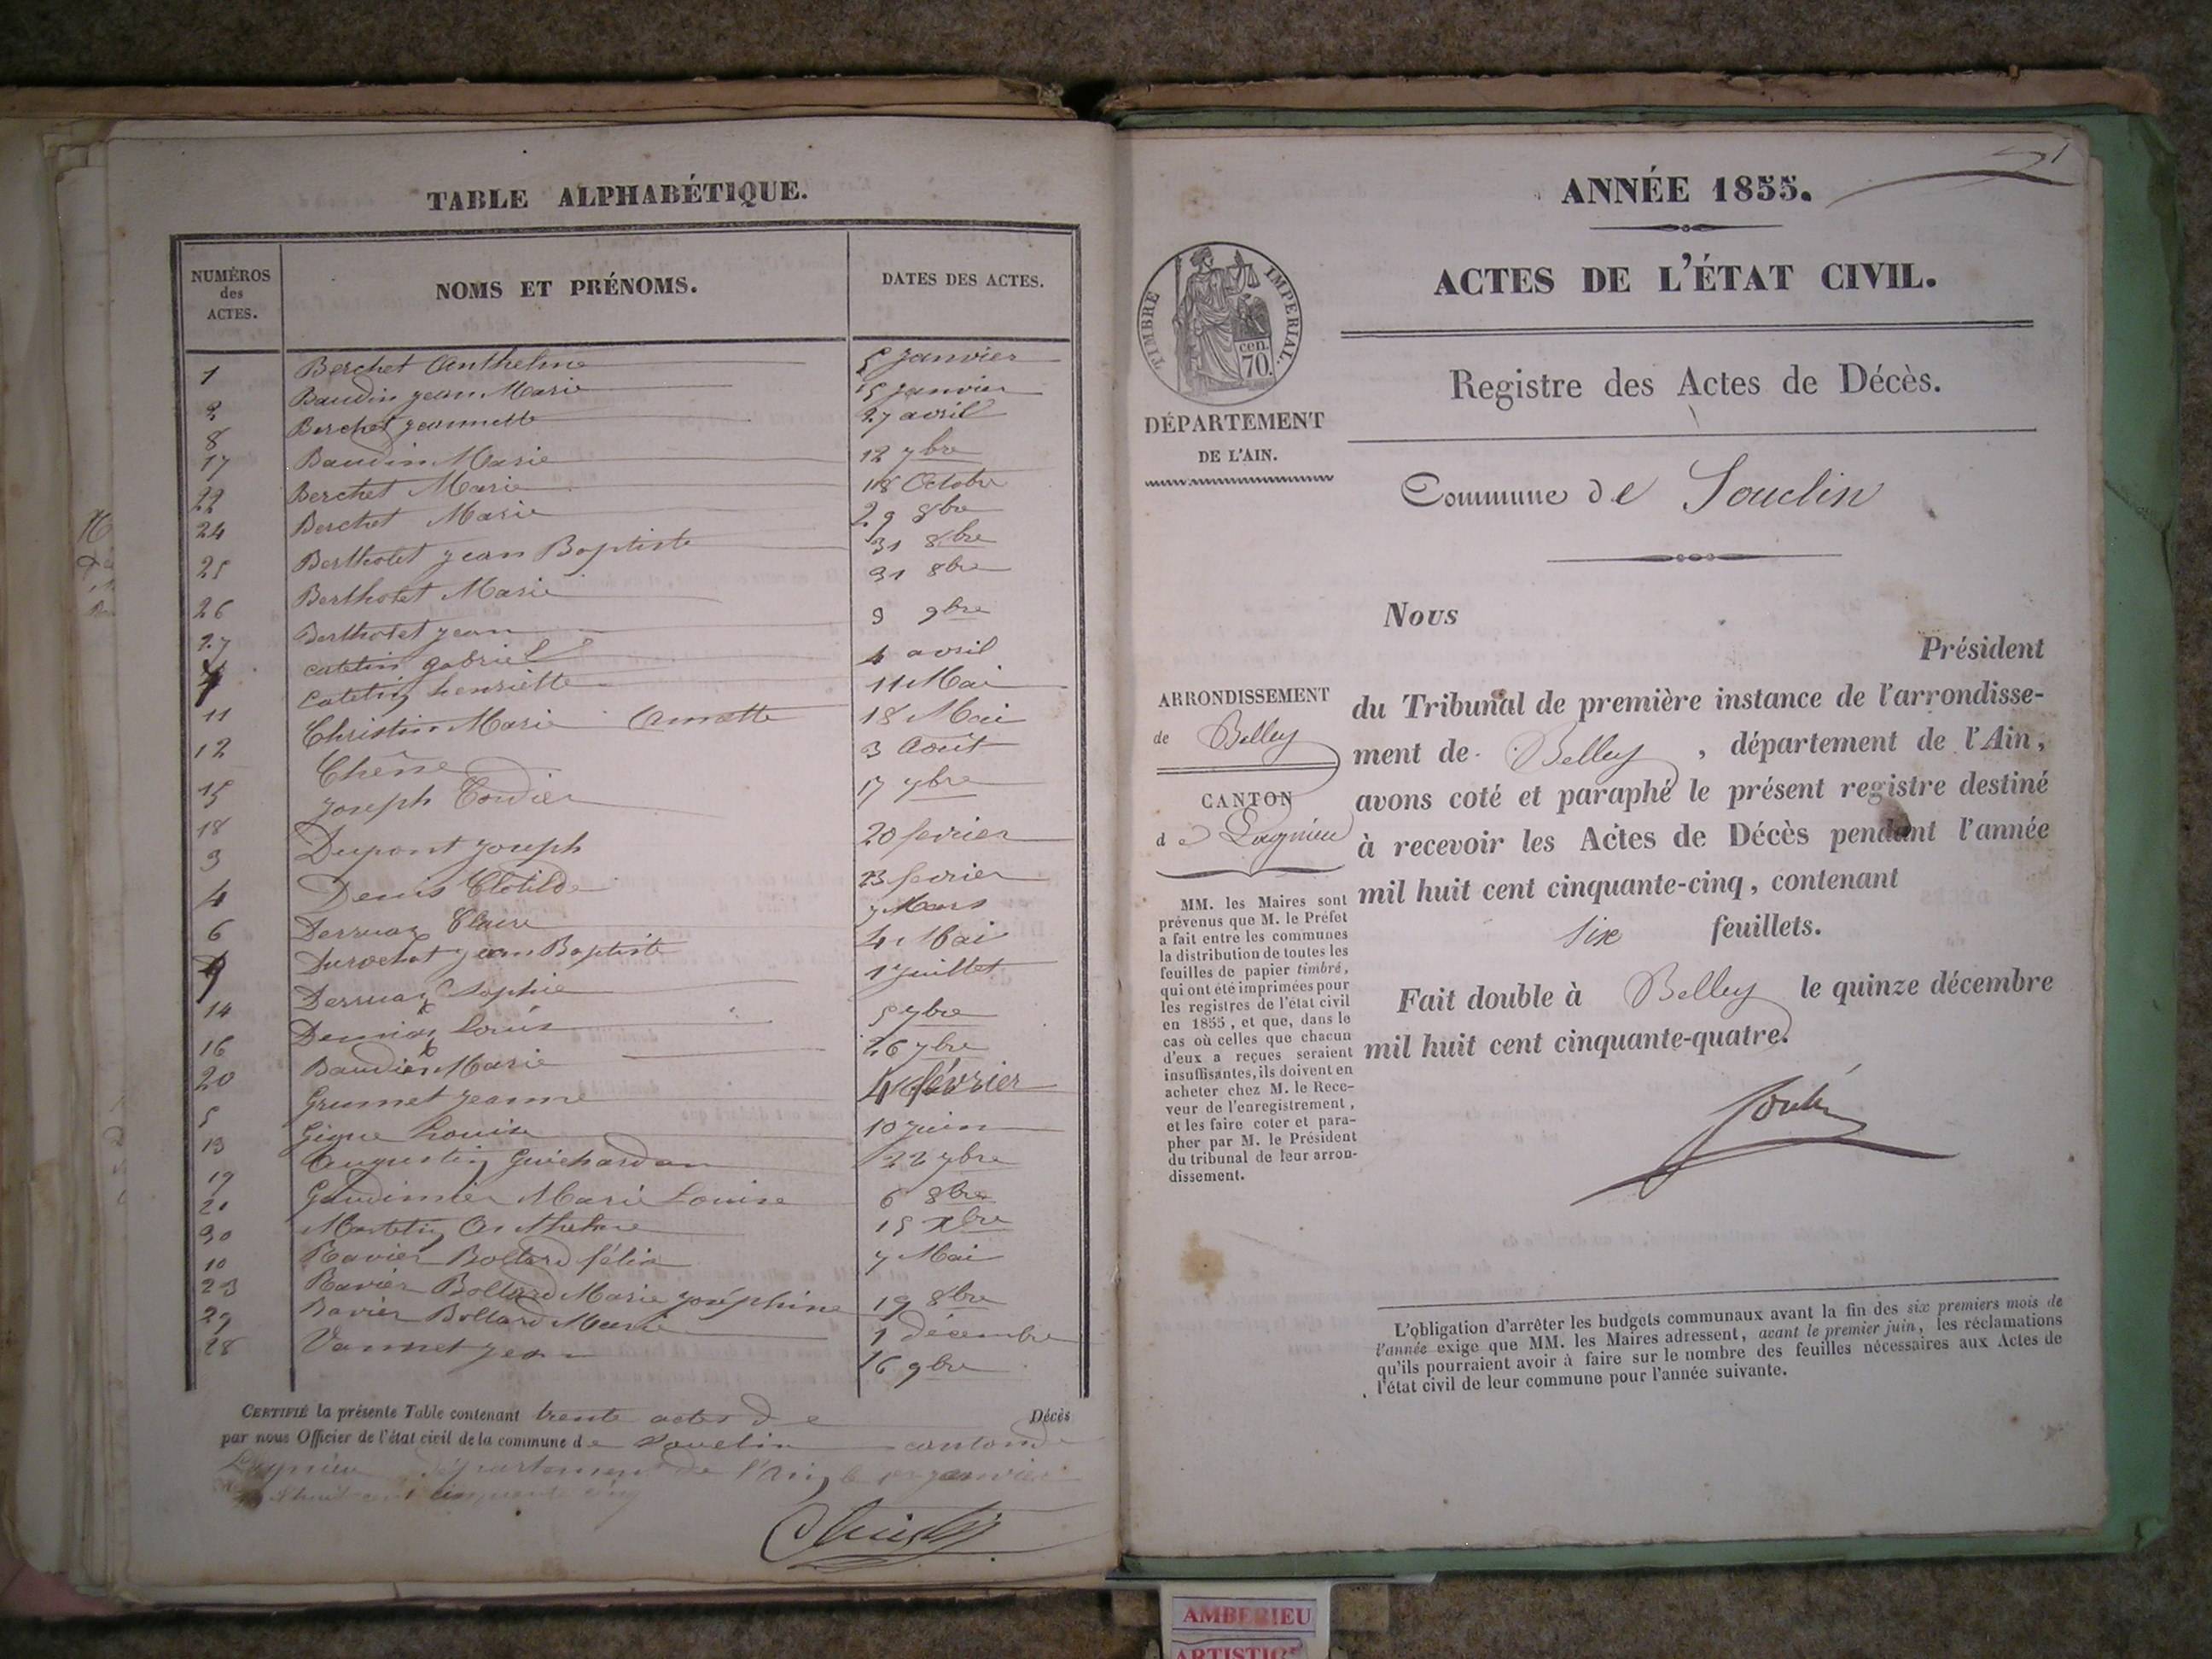 TABLE ALPHABÉTIQUE.
NUMÉROS des ACTES. NOMS ET PRÉNOMS. DATES DES ACTES.
1 Berchet Anthelme 5 Janvier
2 Baudin Jean Marie 15 Janvier
8 Berchet Jeannette 27 avril
17 Baudin Marie 12 7bre
22 Berchet Marie 18 Octobre
24 Berchet Marie 29 8bre
25 Berthotet Jean Baptiste 31 8bre
26 Berthotet Marie 31 8bre
27 Berthotet Jean 3 9bre
7 catelin gabriel 4 avril
11 Catelin henriette 11 Mai
12 Christin Marie Annette 18 Mai
15 Chêne 3 Août
18 Joseph Cordier 17 7bre
3 Dupont Joseph 20 fevrier
4 Denis Clotilde 23 fevrier
6 Derruaz Claire 7 Mars
9 Durochat Jean Baptiste 4 Mai
14 Derruaz Sophie 1 Juillet
16 Louis 5 7bre
20 Baudin Marie 26 7bre
5 Grumet Jeanne février
13 Gigue Louise 10 Juin
19 Augustin Guichardan 22 7bre
21 Gaudimier Marie Louise 6 8bre
30 Martelin Anthelme 15 Xbre
10 Ravier Bollard félix 7 Mai
23 Ravier Bollard Marie Joséphine 19 8bre
29 Ravier Bollard Marie 1 décembre
28 Vannet Jean 16 9bre
CERTIFIÉ la présente Table contenant trente actes de Décès
par nous Officier de l'état civil de la commune de Souclin canton de
Lagnieu département de l'Ain, le 1er janvier
huit cent cinquante cinq
ANNÉE 1855.
ACTES DE L'ÉTAT CIVIL.
TIMBRE IMPÉRIAL.
cen.
70.
Registre des Actes de Décès.
DÉPARTEMENT
DE L'AIN.
Commune de Souclin
Nous
Président
du Tribunal de première instance de l'arrondisse-
ment de Belley, département de l'Ain,
avons coté et paraphé le présent registre destiné
à recevoir les Actes de Décès pendant l'année
mil huit cent cinquante-cinq, contenant
six feuillets.
Fait double à Belley le quinze décembre
mil huit cent cinquante-quatre.
ARRONDISSEMENT
de Belley
CANTON
de Lagnieu
MM. les Maires sont
prévenus que M. le Préfet
a fait entre les communes
la distribution de toutes les
feuilles de papier timbré,
qui ont été imprimées pour
les registres de l'état civil
en 1855, et que, dans le
cas où celles que chacun
d'eux a reçues seraient
insuffisantes, ils doivent en
acheter chez M. le Rece-
veur de l'enregistrement,
et les faire coter et para-
pher par M. le Président
du tribunal de leur arron-
dissement.
L'obligation d'arrêter les budgets communaux avant la fin des six premiers mois de
l'année exige que MM. les Maires adressent, avant le premier juin, les réclamations
qu'ils pourraient avoir à faire sur le nombre des feuilles nécessaires aux Actes de
l'état civil de leur commune pour l'année suivante.
AMBERIEU